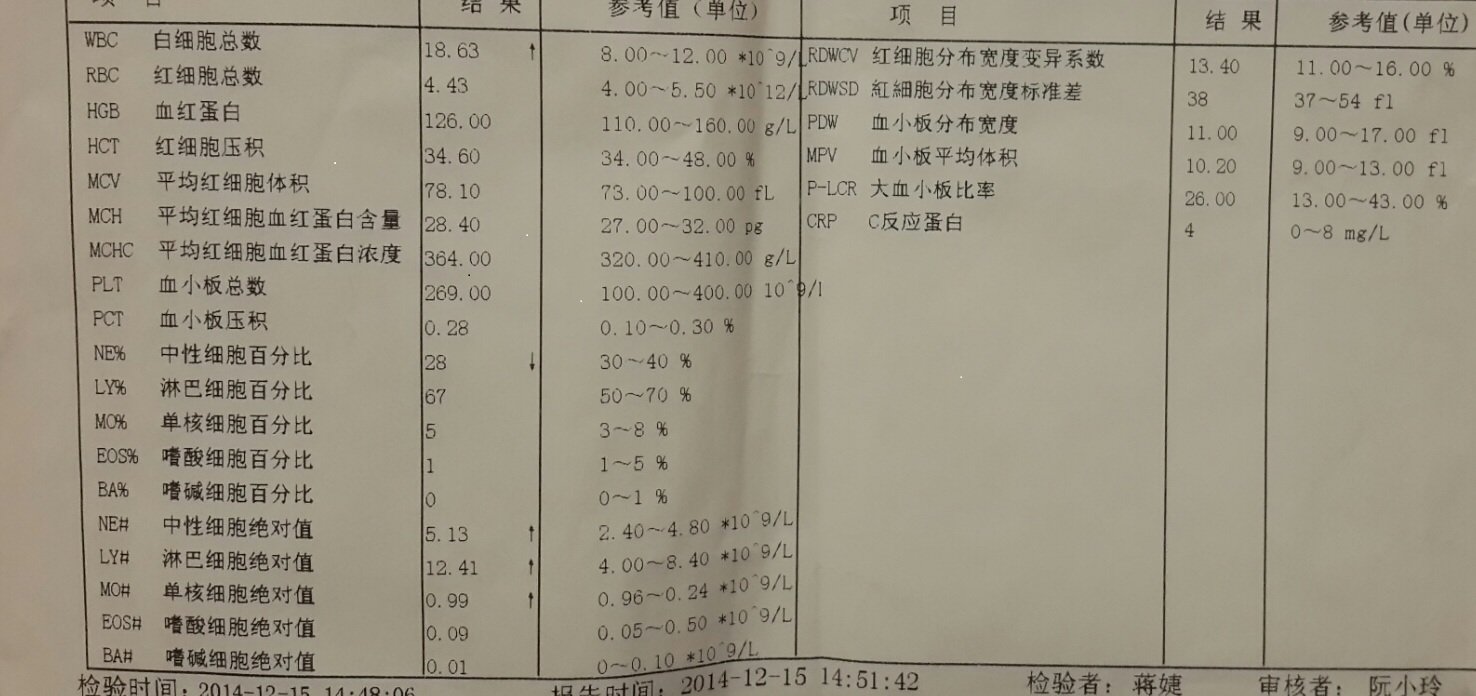 项 目 结 果 参考值（单位） 项 目 结 果 参考值(单位)
WBC 白细胞总数 18.63 ↑ 8.00～12.00 *10^9/L RDWCV 红细胞分布宽度变异系数 13.40 11.00～16.00 %
RBC 红细胞总数 4.43 4.00～5.50 *10^12/L RDWSD 红细胞分布宽度标准差 38 37～54 fl
HGB 血红蛋白 126.00 110.00～160.00 g/L PDW 血小板分布宽度 11.00 9.00～17.00 fl
HCT 红细胞压积 34.60 34.00～48.00 % MPV 血小板平均体积 10.20 9.00～13.00 fl
MCV 平均红细胞体积 78.10 73.00～100.00 fL P-LCR 大血小板比率 26.00 13.00～43.00 %
MCH 平均红细胞血红蛋白含量 28.40 27.00～32.00 pg CRP C反应蛋白 4 0～8 mg/L
MCHC 平均红细胞血红蛋白浓度 364.00 320.00～410.00 g/L
PLT 血小板总数 269.00 100.00～400.00 10^9/l
PCT 血小板压积 0.28 0.10～0.30 %
NE% 中性细胞百分比 28 ↓ 30～40 %
LY% 淋巴细胞百分比 67 50～70 %
MO% 单核细胞百分比 5 3～8 %
EOS% 嗜酸细胞百分比 1 1～5 %
BA% 嗜碱细胞百分比 0 0～1 %
NE# 中性细胞绝对值 5.13 ↑ 2.40～4.80 *10^9/L
LY# 淋巴细胞绝对值 12.41 ↑ 4.00～8.40 *10^9/L
MO# 单核细胞绝对值 0.99 ↑ 0.96～0.24 *10^9/L
EOS# 嗜酸细胞绝对值 0.09 0.05～0.50 *10^9/L
BA# 嗜碱细胞绝对值 0.01 0～0.10 *10^9/L
检验时间：2014-12-15 14:48:06 报告时间：2014-12-15 14:51:42 检验者：蒋婕 审核者：阮小玲